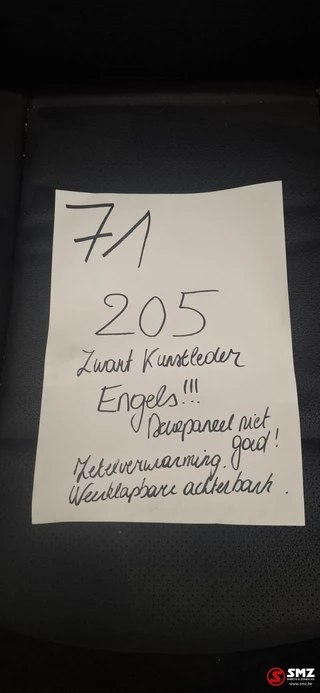 71
205
Zwart Kunstleder
Engels!!!
Deurpaneel niet
goed!
Zetelverwarming.
Weerklapbare achterbank.
SMZ
www.smz.be